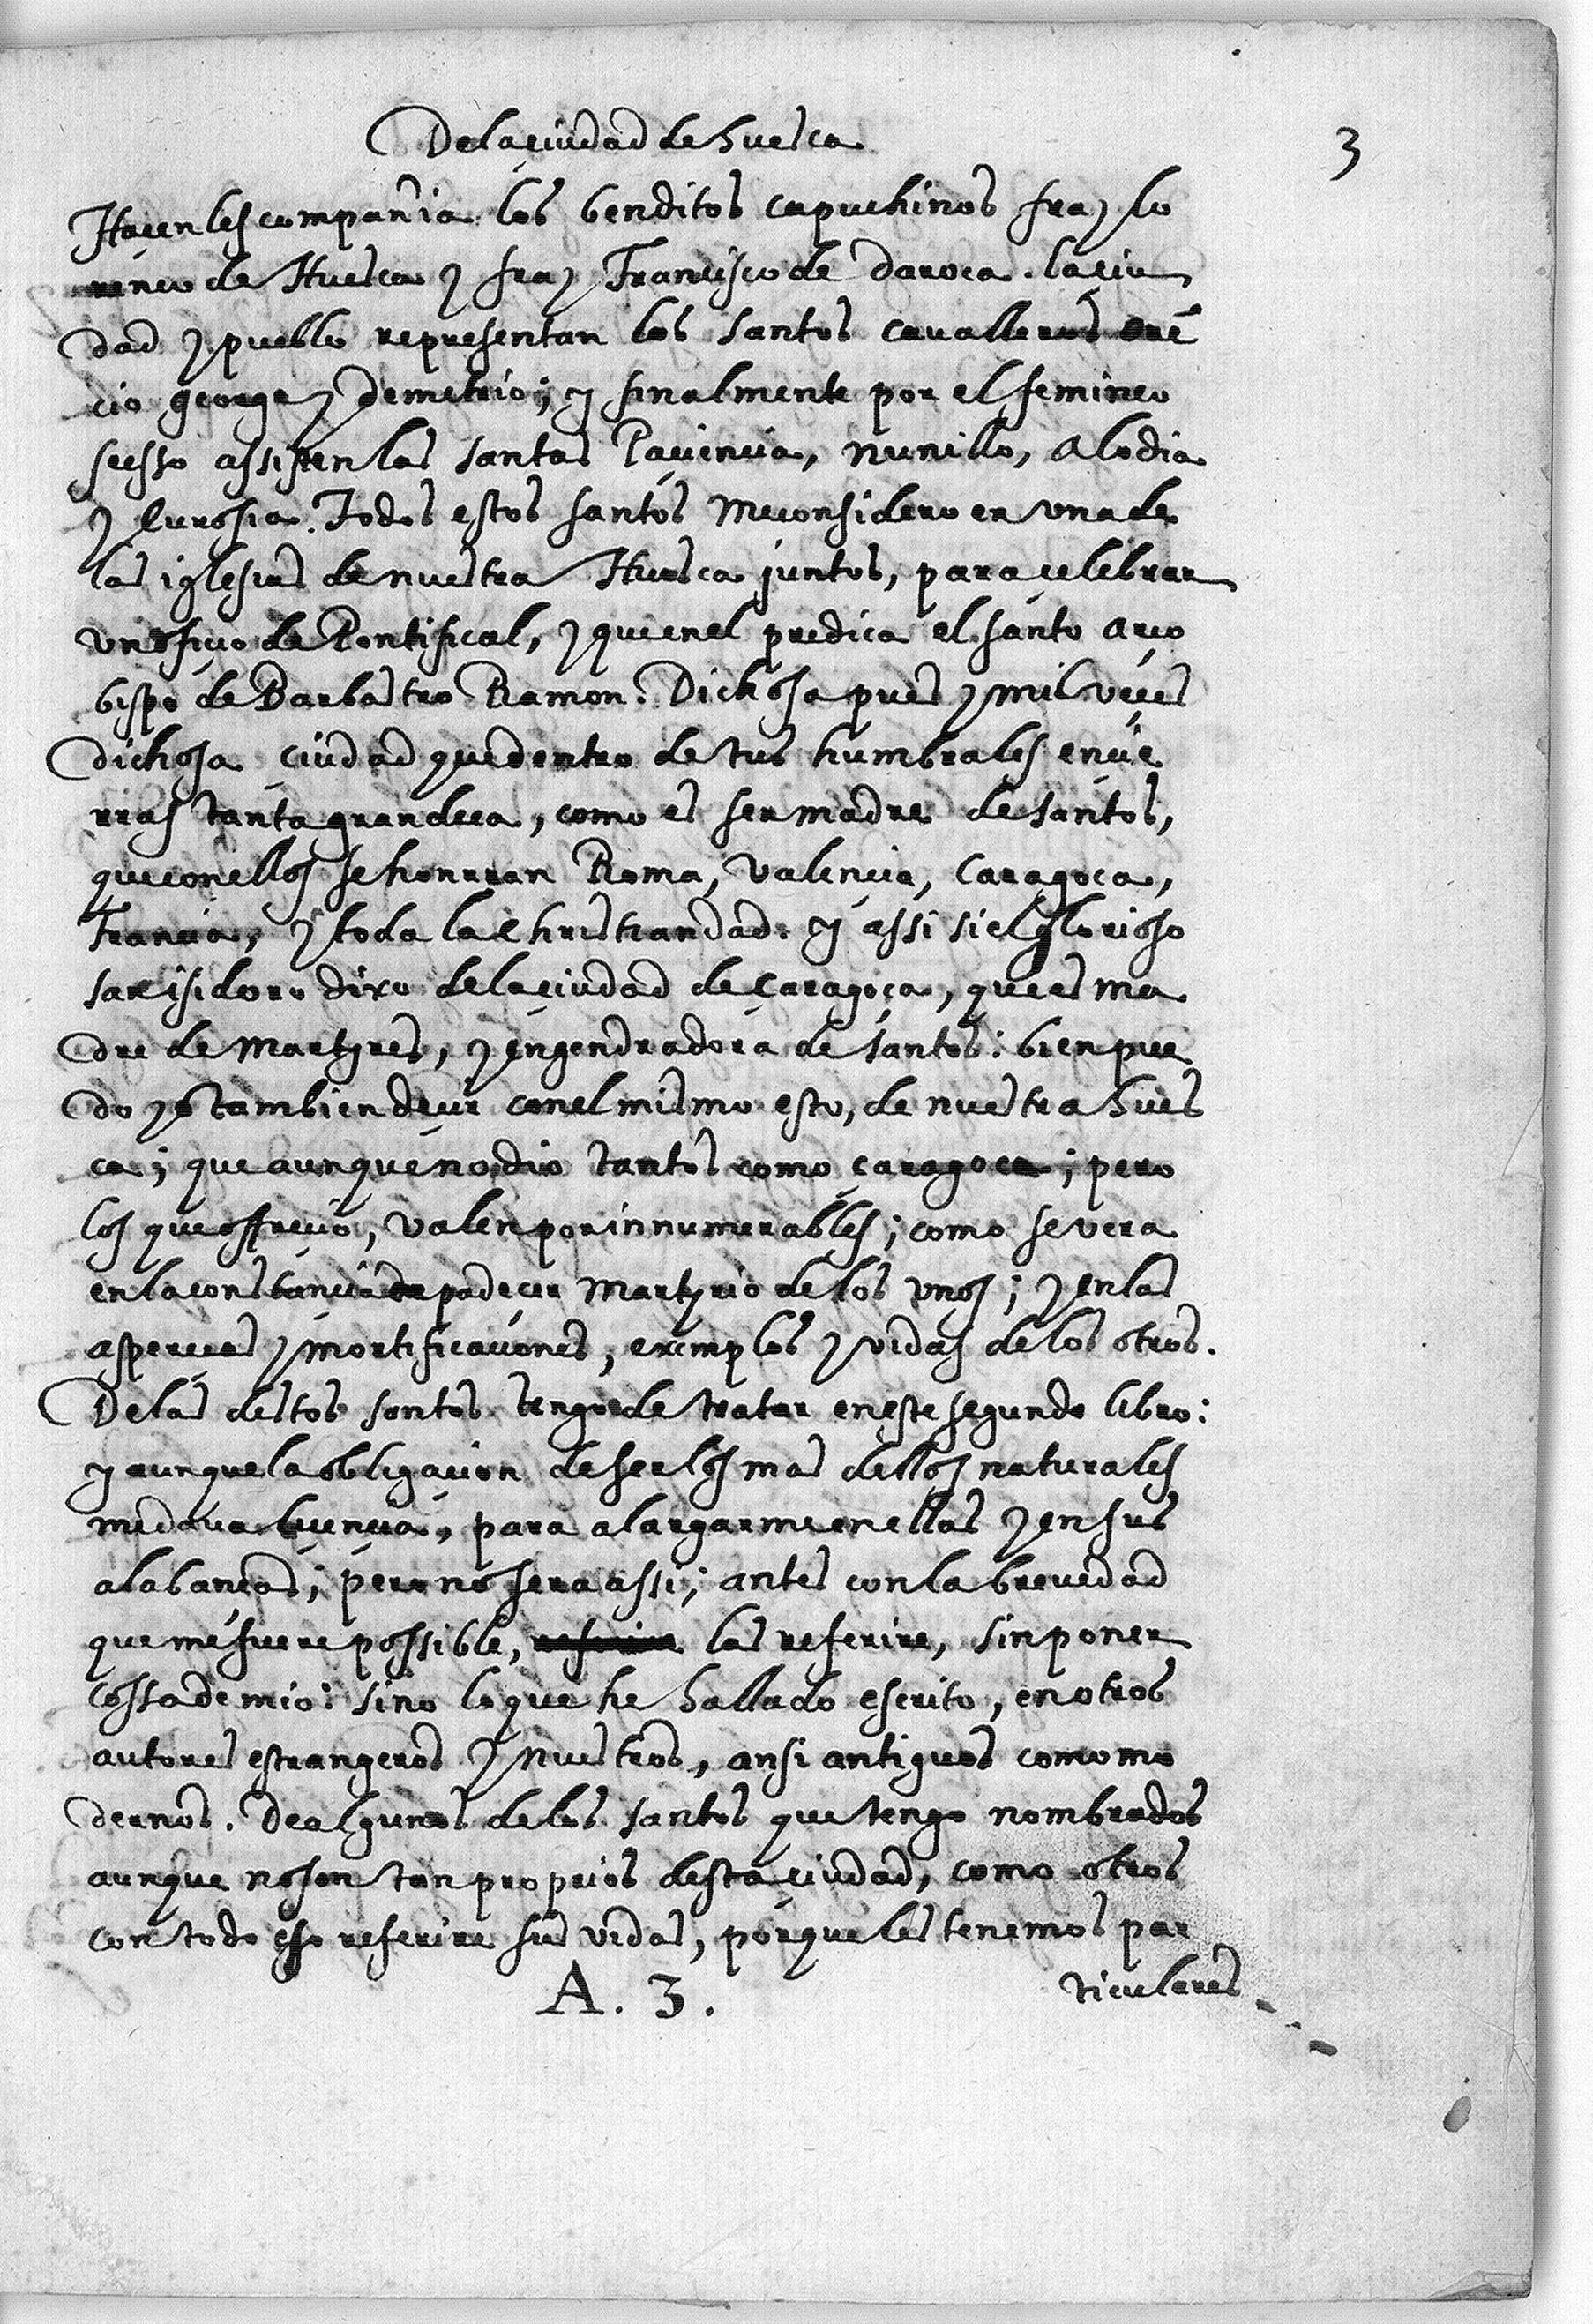 De la çiudad de huesca
3
Haçen les compañia los benditos capuchinos fray lo
renço de Huesca y fray Françisco de daroca. la çiu
dad y pueblo representan los santos cavalleros orê
cio george y demetrio; y finalmente por el femineo
secsso assisten las santas Paçiençia, nunillo, alodia
y eurosia. Todos estos santos me considero en una de
las iglesias de nuestra Huesca juntos, para çelebrar
un ofiçio de Pontifical, y que en el predica el santo arço
bispo de Barbastro Ramon. Dichosa pues y mil veçes
dichosa ciudad que dentro de tus humbrales ençie
rras tanta grandeça, como es ser madre de santos,
que con ellos se honrran Roma, Valençia, Caragoça,
Françia, y toda la christiandad. y assi si el glorioso
san isidoro dixo de la çiudad de Çaragoça, que es ma
dre de Martyres, y engendradora de santos: bien pue
do yo tambien deçir con el mismo esto, de nuestra hues
ca; que aunque no dio tantos como çaragoça; pero
los que offreçio, valen por innumerables; como se vera
en la constançia de padeçer Martyrio de los unos; y en las
espereças y mortificaçiones, exemplos y vidas de los otros.
De las destos santos tengo de tratar en este segundo libro:
y aunque la obligaçion de ser los mas dellos naturales
me dava liçençia, para alargarme en ellas y en sus
alabanças; pero no sera assi; antes con la brevedad
que me fuere possible, las referire, sin poner
cossa de mio: sino lo que he hallado escrito, en otros
autores estrangeros y nuestros, ansi antiguos como mo
dernos. De algunos de los santos que tengo nombrados
aunque no son tan proprios desta çiudad, como otros
con todo eso referire sus vidas, porque les tenemos par
A. 3.
ticulares